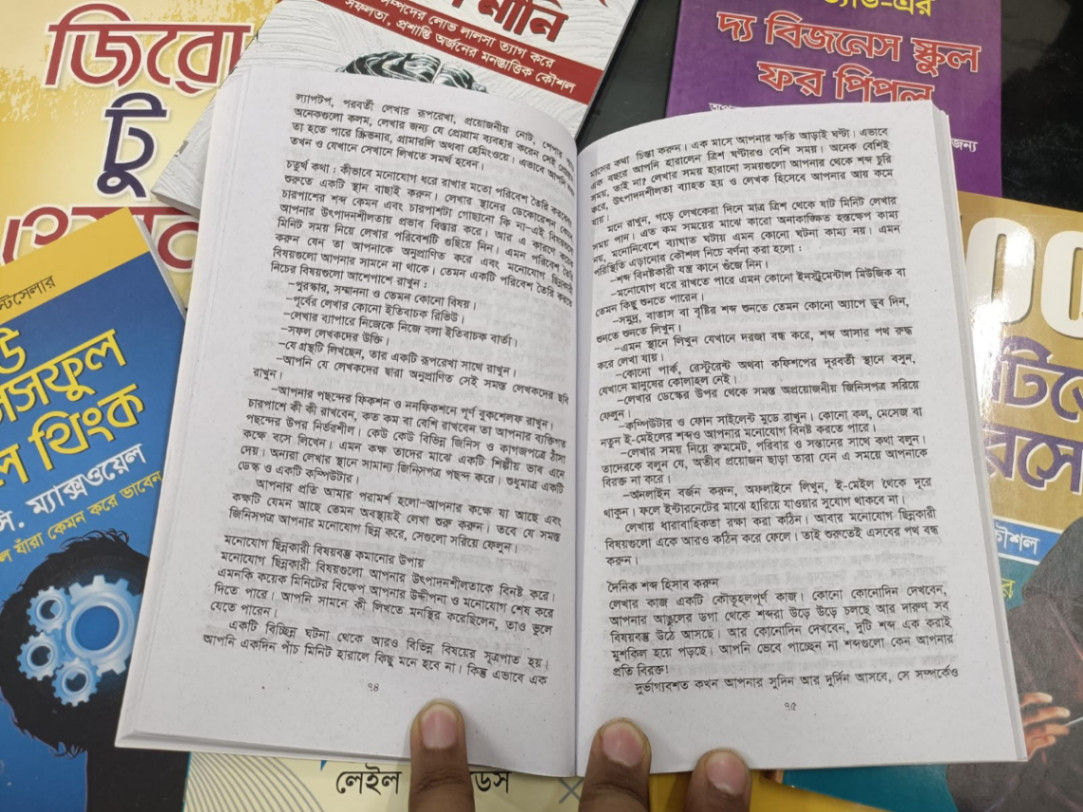 জিরো
টু
নানি
সম্পদের লোভ লালসা ত্যাগ করে
সফলতা, প্রশান্তি অর্জনের মনস্তাত্ত্বিক কৌশল
দ্য বিজনেস স্কুল
ফর পিপল
ল্যাপটপ, পরবর্তী লেখার রূপরেখা, প্রয়োজনীয় নোট, পেপার
অনেকগুলো কলম, লেখার জন্য যে প্রোগ্রাম ব্যবহার করেন সেই
তা হতে পারে স্ক্রিভনার, গ্রামারলি অথবা হেমিংওয়ে। এভাবে আপনি
তখন ও যেখানে সেখানে লিখতে সমর্থ হবেন।
চতুর্থ কথা : কীভাবে মনোযোগ ধরে রাখার মতো পরিবেশ তৈরি করবেন
শুরুতে একটি স্থান বাছাই করুন। লেখার স্থানের ডেকোরেশন কেমন
চারপাশের শব্দ কেমন এবং চারপাশটা গোছানো কি না-এই বিষয়গুলো
আপনার উৎপাদনশীলতায় প্রভাব বিস্তার করে। আর এ কারণে
মিনিট সময় নিয়ে লেখার পরিবেশটি গুছিয়ে নিন। এমন পরিবেশ তৈরি
করুন যেন তা আপনাকে অনুপ্রাণিত করে এবং মনোযোগ ছিন্নকারী
বিষয়গুলো আপনার সামনে না থাকে। তেমন একটি পরিবেশ তৈরি করতে
নিচের বিষয়গুলো আশেপাশে রাখুন :
–পুরস্কার, সম্মাননা ও তেমন কোনো বিষয়।
–পূর্বের লেখার কোনো ইতিবাচক রিভিউ।
–লেখার ব্যাপারে নিজেকে নিজে বলা ইতিবাচক বার্তা।
–সফল লেখকদের উক্তি।
–যে গ্রন্থটি লিখছেন, তার একটি রূপরেখা সাথে রাখুন।
–আপনি যে লেখকদের দ্বারা অনুপ্রাণিত সেই সমস্ত লেখকদের ছবি
রাখুন।
–আপনার পছন্দের ফিকশন ও ননফিকশনে পূর্ণ বুকশেলফ রাখুন।
চারপাশে কী কী রাখবেন, কত কম বা বেশি রাখবেন তা আপনার ব্যক্তিগত
পছন্দের উপর নির্ভরশীল। কেউ কেউ বিভিন্ন জিনিস ও কাগজপত্রে ঠাসা
কক্ষে বসে লিখেন। এমন কক্ষ তাদের মাঝে একটি শিল্পীয় ভাব এনে
দেয়। অন্যরা লেখার স্থানে সামান্য জিনিসপত্র পছন্দ করে। শুধুমাত্র একটি
ডেস্ক ও একটি কম্পিউটার।
আপনার প্রতি আমার পরামর্শ হলো–আপনার কক্ষে যা আছে এবং
কক্ষটি যেমন আছে তেমন অবস্থায়ই লেখা শুরু করুন। তবে যে সমস্ত
জিনিসপত্র আপনার মনোযোগ ছিন্ন করে, সেগুলো সরিয়ে ফেলুন।
মনোযোগ ছিন্নকারী বিষয়বস্তু কমানোর উপায়
মনোযোগ ছিন্নকারী বিষয়গুলো আপনার উৎপাদনশীলতাকে বিনষ্ট করে।
এমনকি কয়েক মিনিটের বিক্ষেপ আপনার উদ্দীপনা ও মনোযোগ শেষ করে
দিতে পারে। আপনি সামনে কী লিখতে মনস্থির করেছিলেন, তাও ভুলে
যেতে পারেন।
একটি বিচ্ছিন্ন ঘটনা থেকে আরও বিভিন্ন বিষয়ের সূত্রপাত হয়।
আপনি একদিন পাঁচ মিনিট হারালে কিছু মনে হবে না। কিন্তু এভাবে এক
৭৪
মাসের কথা চিন্তা করুন। এক মাসে আপনার ক্ষতি আড়াই ঘন্টা। এভাবে
এক বছরে আপনি হারালেন ত্রিশ ঘন্টারও বেশি সময়। অনেক বেশিই
সময়, তাই না? লেখার সময় হারানো সময়গুলো আপনার থেকে শব্দ চুরি
করে, উৎপাদনশীলতা ব্যাহত হয় ও লেখক হিসেবে আপনার আয় কমে
যায়।
মনে রাখুন, গড়ে লেখকেরা দিনে মাত্র ত্রিশ থেকে ষাট মিনিট লেখার
সময় পান। এত কম সময়ের মাঝে কারো অনাকাঙ্ক্ষিত হস্তক্ষেপ কাম্য
নয়, মনোনিবেশে ব্যাঘাত ঘটায় এমন কোনো ঘটনা কাম্য নয়। এমন
পরিস্থিতি এড়ানোর কৌশল নিচে বর্ণনা করা হলো :
–শব্দ বিনষ্টকারী যন্ত্র কানে গুঁজে নিন।
–মনোযোগ ধরে রাখতে পারে এমন কোনো ইনস্ট্রুমেন্টাল মিউজিক বা
তেমন কিছু শুনতে পারেন।
–সমুদ্র, বাতাস বা বৃষ্টির শব্দ শুনতে তেমন কোনো অ্যাপে ডুব দিন,
শুনতে শুনতে লিখুন।
–এমন স্থানে লিখুন যেখানে দরজা বন্ধ করে, শব্দ আসার পথ রুদ্ধ
করে লেখা যায়।
–কোনো পার্ক, রেস্টুরেন্ট অথবা কফিশপের দূরবর্তী স্থানে বসুন,
যেখানে মানুষের কোলাহল নেই।
–লেখার ডেস্কের উপর থেকে সমস্ত অপ্রয়োজনীয় জিনিসপত্র সরিয়ে
ফেলুন।
–কম্পিউটার ও ফোন সাইলেন্ট মুডে রাখুন। কোনো কল, মেসেজ বা
নতুন ই-মেইলের শব্দও আপনার মনোযোগ বিনষ্ট করতে পারে।
–লেখার সময় নিয়ে রুমমেট, পরিবার ও সন্তানের সাথে কথা বলুন।
তাদেরকে বলুন যে, অতীব প্রয়োজন ছাড়া তারা যেন এ সময়ে আপনাকে
বিরক্ত না করে।
–অনলাইন বর্জন করুন, অফলাইনে লিখুন, ই-মেইল থেকে দূরে
থাকুন। ফলে ইন্টারনেটের মাঝে হারিয়ে যাওয়ার সুযোগ থাকবে না।
লেখায় ধারাবাহিকতা রক্ষা করা কঠিন। আবার মনোযোগ ছিন্নকারী
বিষয়গুলো একে আরও কঠিন করে ফেলে। তাই শুরুতেই এসবের পথ বন্ধ
করুন।
দৈনিক শব্দ হিসাব করুন
লেখার কাজ একটি কৌতূহলপূর্ণ কাজ। কোনো কোনোদিন দেখবেন,
আপনার আঙুলের ডগা থেকে শব্দরা উড়ে উড়ে চলছে আর দারুণ সব
বিষয়বস্তু উঠে আসছে। আর কোনোদিন দেখবেন, দুটি শব্দ এক করাই
মুশকিল হয়ে পড়ছে। আপনি ভেবে পাচ্ছেন না শব্দগুলো কেন আপনার
প্রতি বিরক্ত!
দুর্ভাগ্যবশত কখন আপনার সুদিন আর দুর্দিন আসবে, সে সম্পর্কেও
৭৫
থিংক
সি. ম্যাক্সওয়েল
যাঁরা কেমন করে ভাবেন
জন্য
কৌশল
লেইল